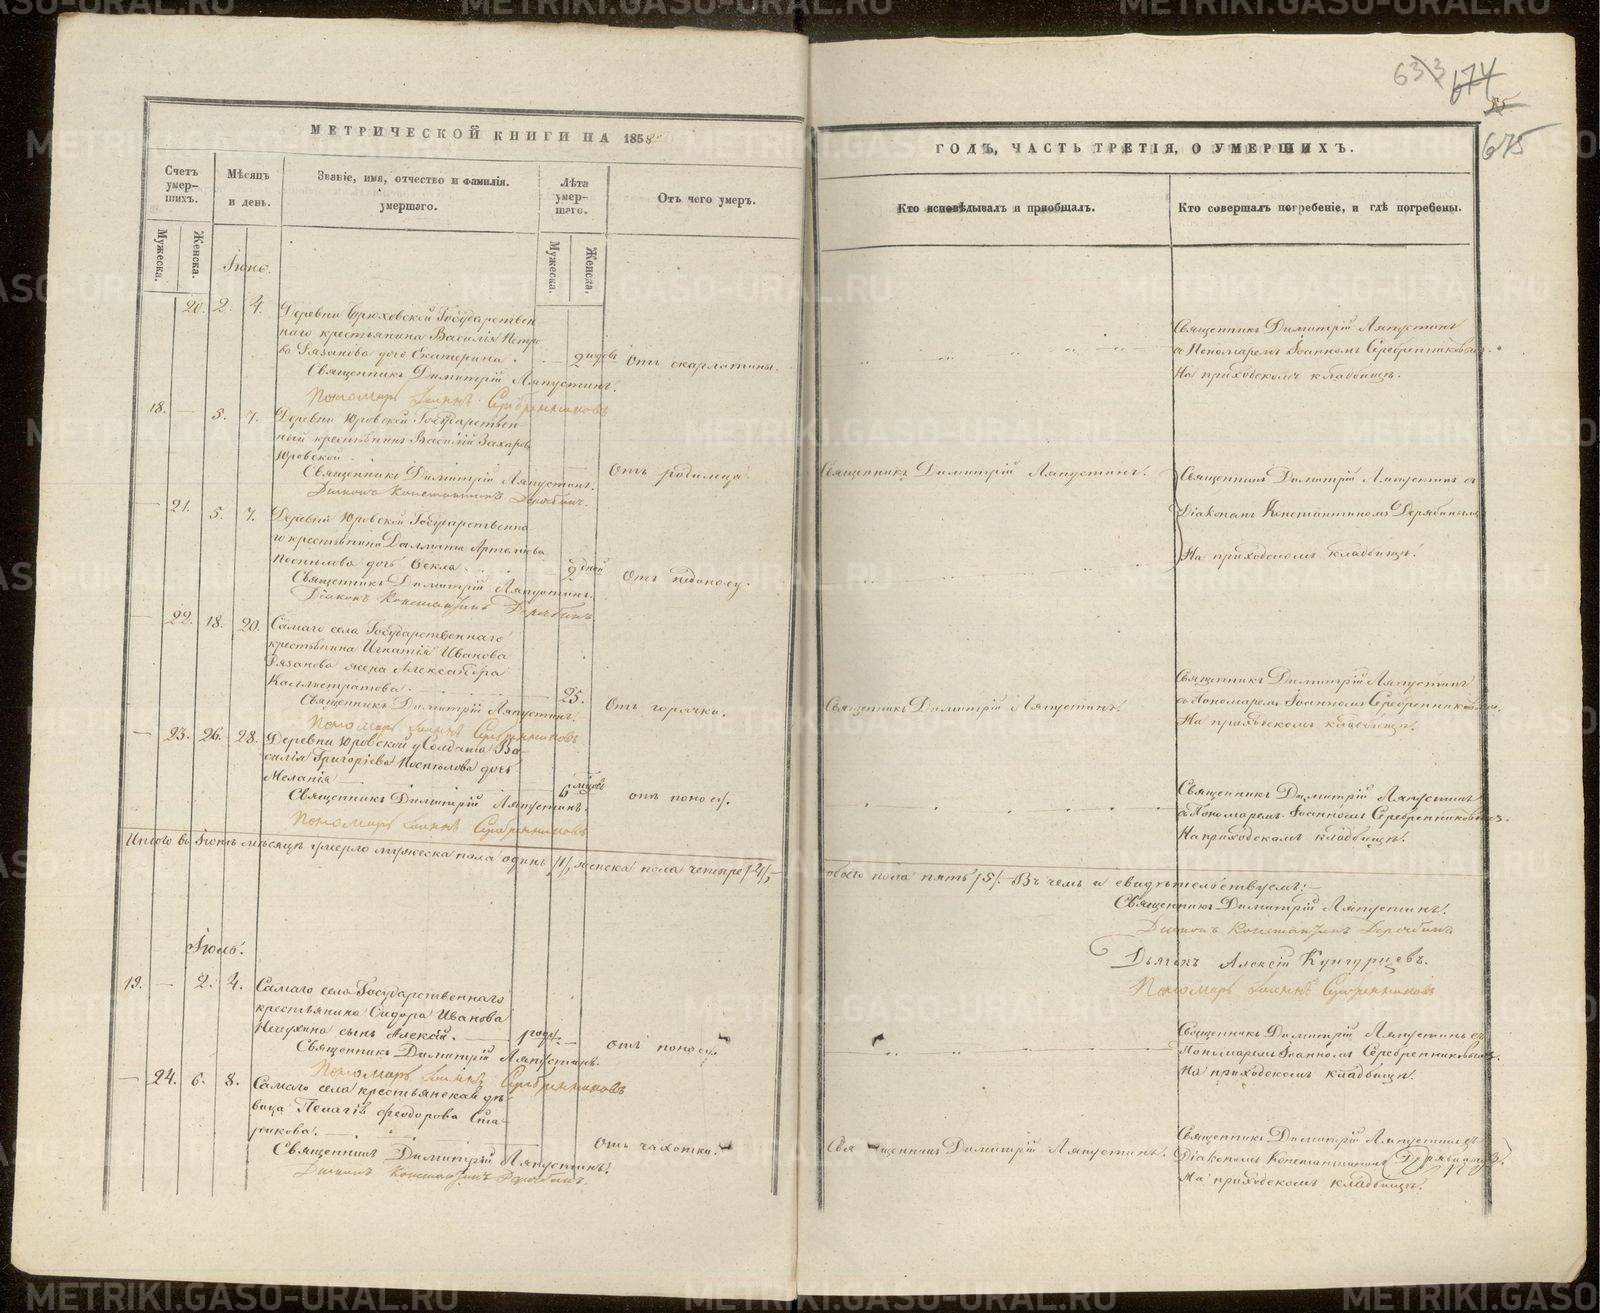 633 674
55
675
МЕТРИЧЕСКОЙ КНИГИ НА 1858
ГОДЪ, ЧАСТЬ ТРЕТІЯ, О УМЕРШИХЪ.
Счетъ умер-шихъ.
Мужеска.
Женска.
Мѣсяцъ и день.
Званіе, имя, отчество и фамилія. умершаго.
Лѣта умер-шаго.
Мужеска.
Женска.
Отъ чего умеръ.
Кто исповѣдывалъ и пріобщалъ.
Кто совершалъ погребеніе, и гдѣ погребены.
Іюнь.
20. 2. 4.
Деревни Брюховской Государствен
наго крестьянина Василія Петро
ва Рязанова дочь Екатерина
2 годы
Отъ скарлатины.
Священникъ Димитрій Ляпустинъ.
Пономарь Іоаннъ Серебренниковъ
Священникъ Димитрій Ляпустинъ
съ Пономаремъ Іоанномъ Серебренниковымъ.
На приходскомъ кладбищѣ.
18. — 5. 7.
Деревни Юровской Государствен
ный крестьянинъ Василій Захаровъ
Юровской
Отъ родимца.
Священникъ Димитрій Ляпустинъ.
Діаконъ Константинъ Дерябинъ.
Священникъ Димитрій Ляпустинъ.
Священникъ Димитрій Ляпустинъ съ
Діакономъ Константиномъ Дерябинымъ
На приходскомъ кладбищѣ.
— 21. 5. 7.
Деревни Юровской Государственна
го крестьянина Далмата Артемьева
Поспѣлова дочь Ѳекла
9 дней
Отъ поносу.
Священникъ Димитрій Ляпустинъ.
Діаконъ Константинъ Дерябинъ
— 22. 18. 20.
Самаго села Государственнаго
крестьянина Игнатія Иванова
Рязанова жена Александра
Каллистратова
25.
Отъ горячки.
Священникъ Димитрій Ляпустинъ.
Пономарь Іоаннъ Серебренниковъ
Священникъ Димитрій Ляпустинъ.
Священникъ Димитрій Ляпустинъ
съ Пономаремъ Іоанномъ Серебренниковымъ.
На приходскомъ кладбищѣ.
— 23. 26. 28.
Деревни Юровской у Солдата Ва
силія Григоріева Поспѣлова дочь
Меланія
6 мѣсяцовъ
отъ поносу.
Священникъ Димитрій Ляпустинъ.
Пономарь Іоаннъ Серебренниковъ
Священникъ Димитрій Ляпустинъ
съ Пономаремъ Іоанномъ Серебренниковымъ.
На приходскомъ кладбищѣ.
Итого въ Іюнѣ мѣсяцѣ умерло мужеска пола одинъ /1/, женска пола четыре /4/, —
обоего пола пять /5/. Въ чемъ и свидѣтельствуемъ: —
Священникъ Димитрій Ляпустинъ.
Діаконъ Константинъ Дерябинъ
Дьячекъ Алексій Кунгурцевъ.
Пономарь Іоаннъ Серебренниковъ
Іюль.
19. — 2. 4.
Самаго села Государственнаго
крестьянина Сидора Иванова
Нечухина сынъ Алексій.
Отъ поносу
Священникъ Димитрій Ляпустинъ.
Пономарь Іоаннъ Серебренниковъ
Священникъ Димитрій Ляпустинъ съ
Пономаремъ Іоанномъ Серебренниковымъ.
На приходскомъ кладбищѣ.
— 24. 6. 8.
Самаго села крестьянская дѣ
вица Пелагія Ѳеодорова Ста
рикова.
Отъ чахотки.
Священникъ Димитрій Ляпустинъ.
Діаконъ Константинъ Дерябинъ
Священникъ Димитрій Ляпустинъ.
Священникъ Димитрій Ляпустинъ съ
Діакономъ Константиномъ Дерябинымъ.
На приходскомъ кладбищѣ.
METRIKI.GASO-URAL.RU